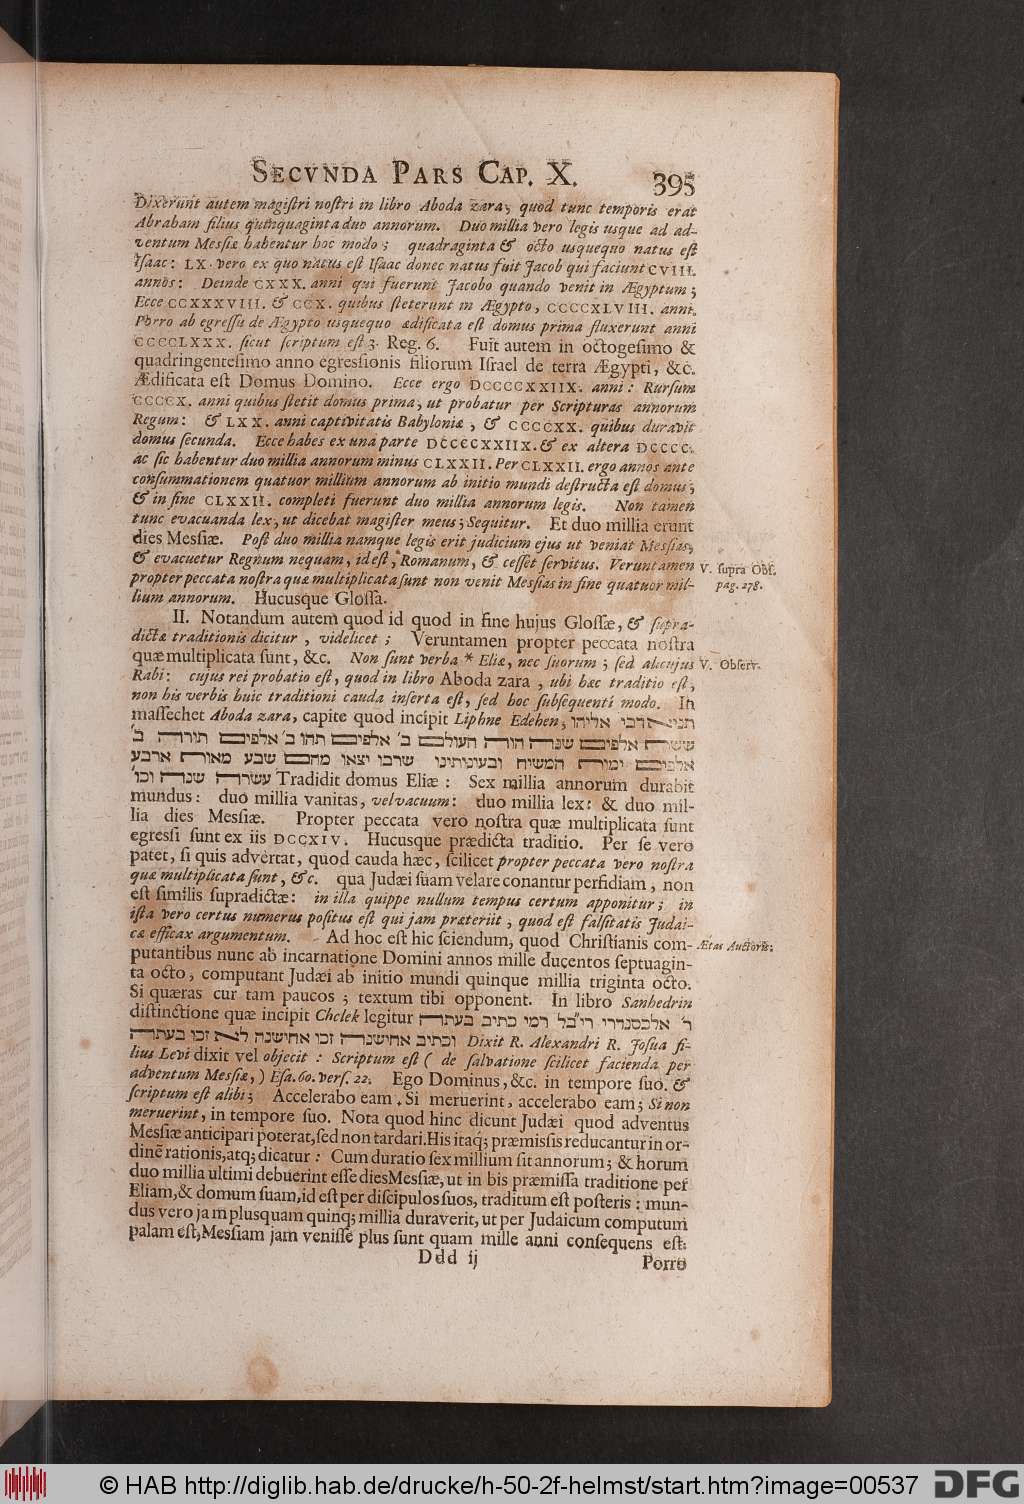 SECVNDA PARS CAP. X. 395
Dixerunt autem magiſtri noſtri in libro Aboda zara, quod tunc temporis erat
Abraham filius quinquaginta duo annorum. Duo millia vero legis usque ad ad-
ventum Meſſiæ habentur hoc modo; quadraginta & octo usquequo natus eſt
Iſaac: LX. vero ex quo natus eſt Iſaac donec natus fuit Jacob qui faciunt CVIII.
annos: Deinde CXXX. anni qui fuerunt Jacobo quando venit in Ægyptum;
Ecce CCXXXVIII. & CCX. quibus ſteterunt in Ægypto, CCCCXLVIII. anni.
Porro ab egreſſu de Ægypto usquequo ædificata eſt domus prima fluxerunt anni
CCCCLXXX. ſicut ſcriptum eſt 3. Reg. 6. Fuit autem in octogeſimo &
quadringenteſimo anno egreſſionis filiorum Iſrael de terra Ægypti, &c.
Ædificata eſt Domus Domino. Ecce ergo DCCCCXXIIX. anni: Rurſum
CCCCX. anni quibus ſtetit domus prima, ut probatur per Scripturas annorum
Regum: & LXX. anni captivitatis Babyloniæ, & CCCCXX. quibus duravit
domus ſecunda. Ecce habes ex una parte DCCCCXXIIX. & ex altera DCCCC.
ac ſic habentur duo millia annorum minus CLXXII. Per CLXXII. ergo annos ante
conſummationem quatuor millium annorum ab initio mundi deſtructa eſt domus;
& in fine CLXXII. completi fuerunt duo millia annorum legis. Non tamen
tunc evacuanda lex, ut dicebat magiſter meus; Sequitur. Et duo millia erunt
dies Meſſiæ. Poſt duo millia namque legis erit judicium ejus ut veniat Meſſias,
& evacuetur Regnum nequam, id eſt, Romanum, & ceſſet ſervitus. Veruntamen
V. ſupra Obſ.
pag. 278.
propter peccata noſtra quæ multiplicata ſunt non venit Meſſias in fine quatuor mil-
lium annorum. Hucusque Gloſſa.
II. Notandum autem quod id quod in fine hujus Gloſſæ, & ſupra-
dictæ traditionis dicitur, videlicet; Veruntamen propter peccata noſtra
quæ multiplicata ſunt, &c. Non ſunt verba * Eliæ, nec ſuorum; ſed alicujus
V. Obſerv.
Rabi: cujus rei probatio eſt, quod in libro Aboda zara, ubi hæc traditio eſt,
non his verbis huic traditioni cauda inſerta eſt, ſed hoc ſubſequenti modo. In
maſſechet Aboda zara, capite quod incipit Liphne Edehen, תניא דבי אליהו
ששה אלפים שנה הוה העולם ב׳ אלפים תהו ב׳ אלפים תורה ב׳
אלפים ימות המשיח ובעונותינו שרבו יצאו מהם שבע מאות ארבע
עשרה שנה וכו׳ Tradidit domus Eliæ: Sex millia annorum durabit
mundus: duo millia vanitas, vel vacuum: duo millia lex: & duo mil-
lia dies Meſſiæ. Propter peccata vero noſtra quæ multiplicata ſunt
egreſſi ſunt ex iis DCCXIV. Hucusque prædicta traditio. Per ſe vero
patet, ſi quis advertat, quod cauda hæc, ſcilicet propter peccata vero noſtra
quæ multiplicata ſunt, &c. qua Judæi ſuam velare conantur perfidiam, non
eſt ſimilis ſupradictæ: in illa quippe nullum tempus certum apponitur; in
iſta vero certus numerus poſitus eſt qui jam præteriit, quod eſt falſitatis Judai-
cæ efficax argumentum. Ad hoc eſt hic ſciendum, quod Chriſtianis com-
Ætas Auctoris.
putantibus nunc ab incarnatione Domini annos mille ducentos ſeptuagin-
ta octo, computant Judæi ab initio mundi quinque millia triginta octo.
Si quæras cur tam paucos; textum tibi opponent. In libro Sanhedrin
diſtinctione quæ incipit Chelek legitur ר׳ אלכסנדרי רי״בל רמי כתיב בעתה
וכתיב אחישנה זכו אחישנה לא זכו בעתה Dixit R. Alexandri R. Joſua fi-
lius Levi dixit vel objecit: Scriptum eſt (de ſalvatione ſcilicet facienda per
adventum Meſſiæ,) Eſa. 60. verſ. 22. Ego Dominus, &c. in tempore ſuo. &
ſcriptum eſt alibi; Accelerabo eam. Si meruerint, accelerabo eam; Si non
meruerint, in tempore ſuo. Nota quod hinc dicunt Judæi quod adventus
Meſſiæ anticipari poterat, ſed non tardari. His itaq; præmiſſis reducantur in or-
dinē rationis, atq; dicatur: Cum duratio ſex millium ſit annorum; & horum
duo millia ultimi debuerint eſſe dies Meſſiæ, ut in bis præmiſſa traditione per
Eliam, & domum ſuam, id eſt per diſcipulos ſuos, traditum eſt poſteris: mun-
dus vero jam plusquam quinq; millia duraverit, ut per Judaicum computum
palam eſt, Meſſiam jam veniſſe plus ſunt quam mille anni conſequens eſt.
Ddd ij
Porro
© HAB http://diglib.hab.de/drucke/h-50-2f-helmst/start.htm?image=00537 DFG